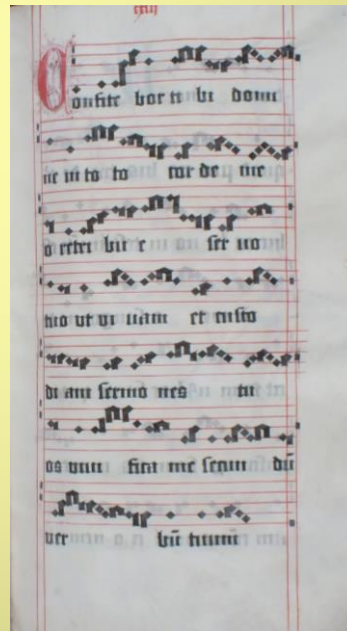 Confite bor ti bi domi
ne in to to cor de me
o retri bu e ser uo
tuo ut vi uam et custo
di am sermo nes tu
os uiui fica me secun dū
ver bū tuum